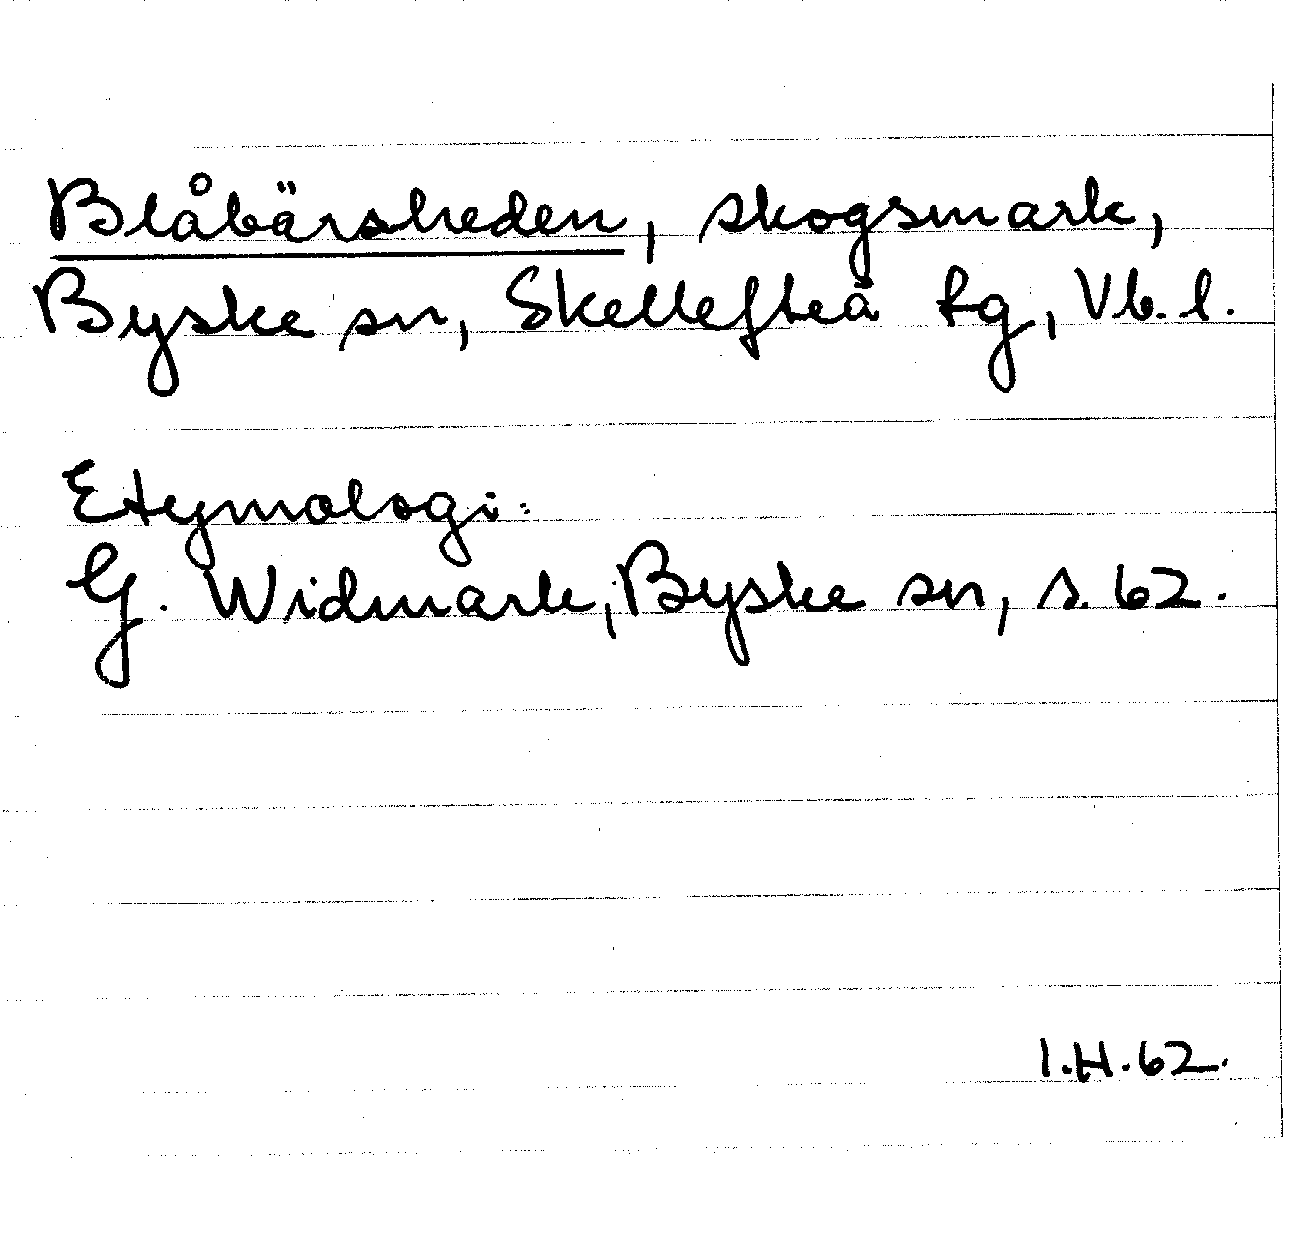 Blåbärsheden, skogsmark,
Byske sn, Skellefteå tg, Vb. l.
Etymologi:
G. Widmark, Byske sn, s. 62.
I.H.62.